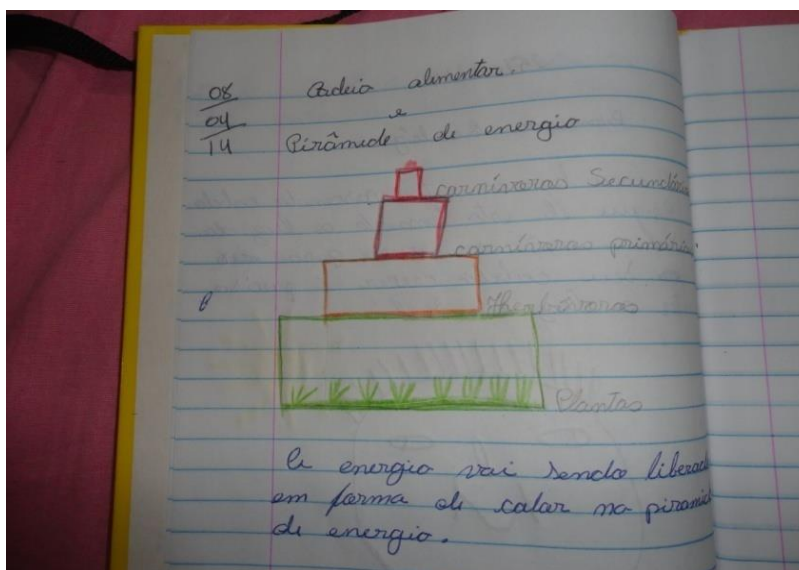 08
04
14
Cadeia alimentar.
e
Pirâmede de energia
carnívoras Secundária
carnívoras primária.
Herbívoras
Plantas
A energia vai sendo liberad
em forma de calor na piramid
de energia.